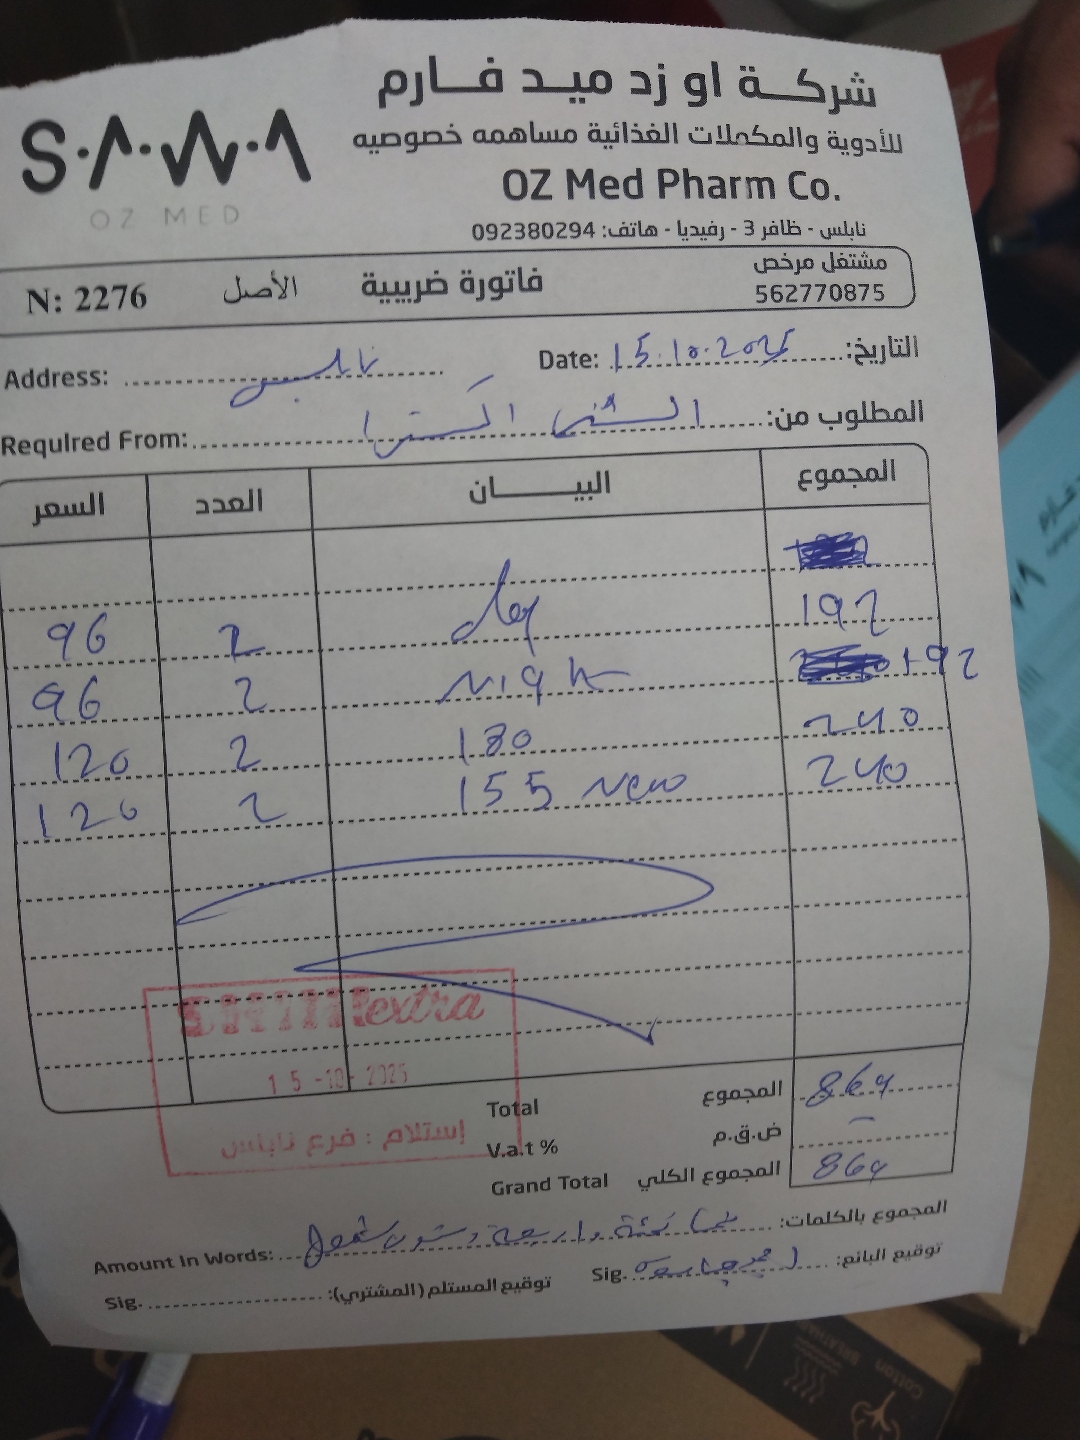 شركة او زد ميد فارم
للأدوية والمكملات الغذائية مساهمه خصوصيه
S.A.W.A
OZ MED
OZ Med Pharm Co.
نابلس - ظافر 3 - رفيديا - هاتف: 092380294
مشتغل مرخص
562770875
فاتورة ضريبية
الأصل
N: 2276
التاريخ: Date: 15.10.2025
Address: نابلس
المطلوب من: الشني اكسترا Required From:
المجموع البيــــان العدد السعر
192 day 2 96
192 night 2 96
240 180 2 120
240 155 New 2 120
extra
15-10-2025
إستلام : فرع نابلس
Total المجموع 864
V.a.t % ض.ق.م -
Grand Total المجموع الكلي 864
المجموع بالكلمات: ثمانمئة واربعة وستون شيقل Amount In Words:
توقيع البائع: احمد Sig.
توقيع المستلم (المشتري): Sig.
Cotton